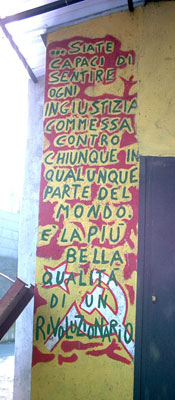 ... SIATE
CAPACI DI
SENTIRE
OGNI
INGIUSTIZIA
COMMESSA
CONTRO
CHIUNQUE IN
QUALUNQUE
PARTE DEL
MONDO.
E LA PIÙ
BELLA
QUALITÀ
DI UN
RIVOLUZIONARIO